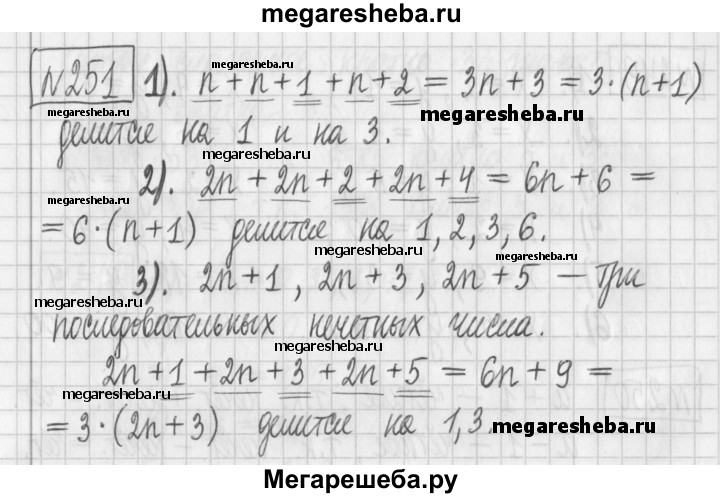 megaresheba.ru
№251 1). n + n + 1 + n + 2 = 3n + 3 = 3·(n+1)
megaresheba.ru
megaresheba.ru
megaresheba.ru
делится на 1 и на 3.
megaresheba.ru
2). 2n + 2n + 2 + 2n + 4 = 6n + 6 =
megaresheba.ru
= 6·(n+1) делится на 1, 2, 3, 6.
megaresheba.ru
3). 2n+1, 2n+3, 2n+5 – три
megaresheba.ru
последовательных нечетных числа.
megaresheba.ru
2n + 1 + 2n + 3 + 2n + 5 = 6n + 9 =
megaresheba.ru
= 3·(2n+3) делится на 1,3.
megaresheba.ru
Мегарешеба.ру